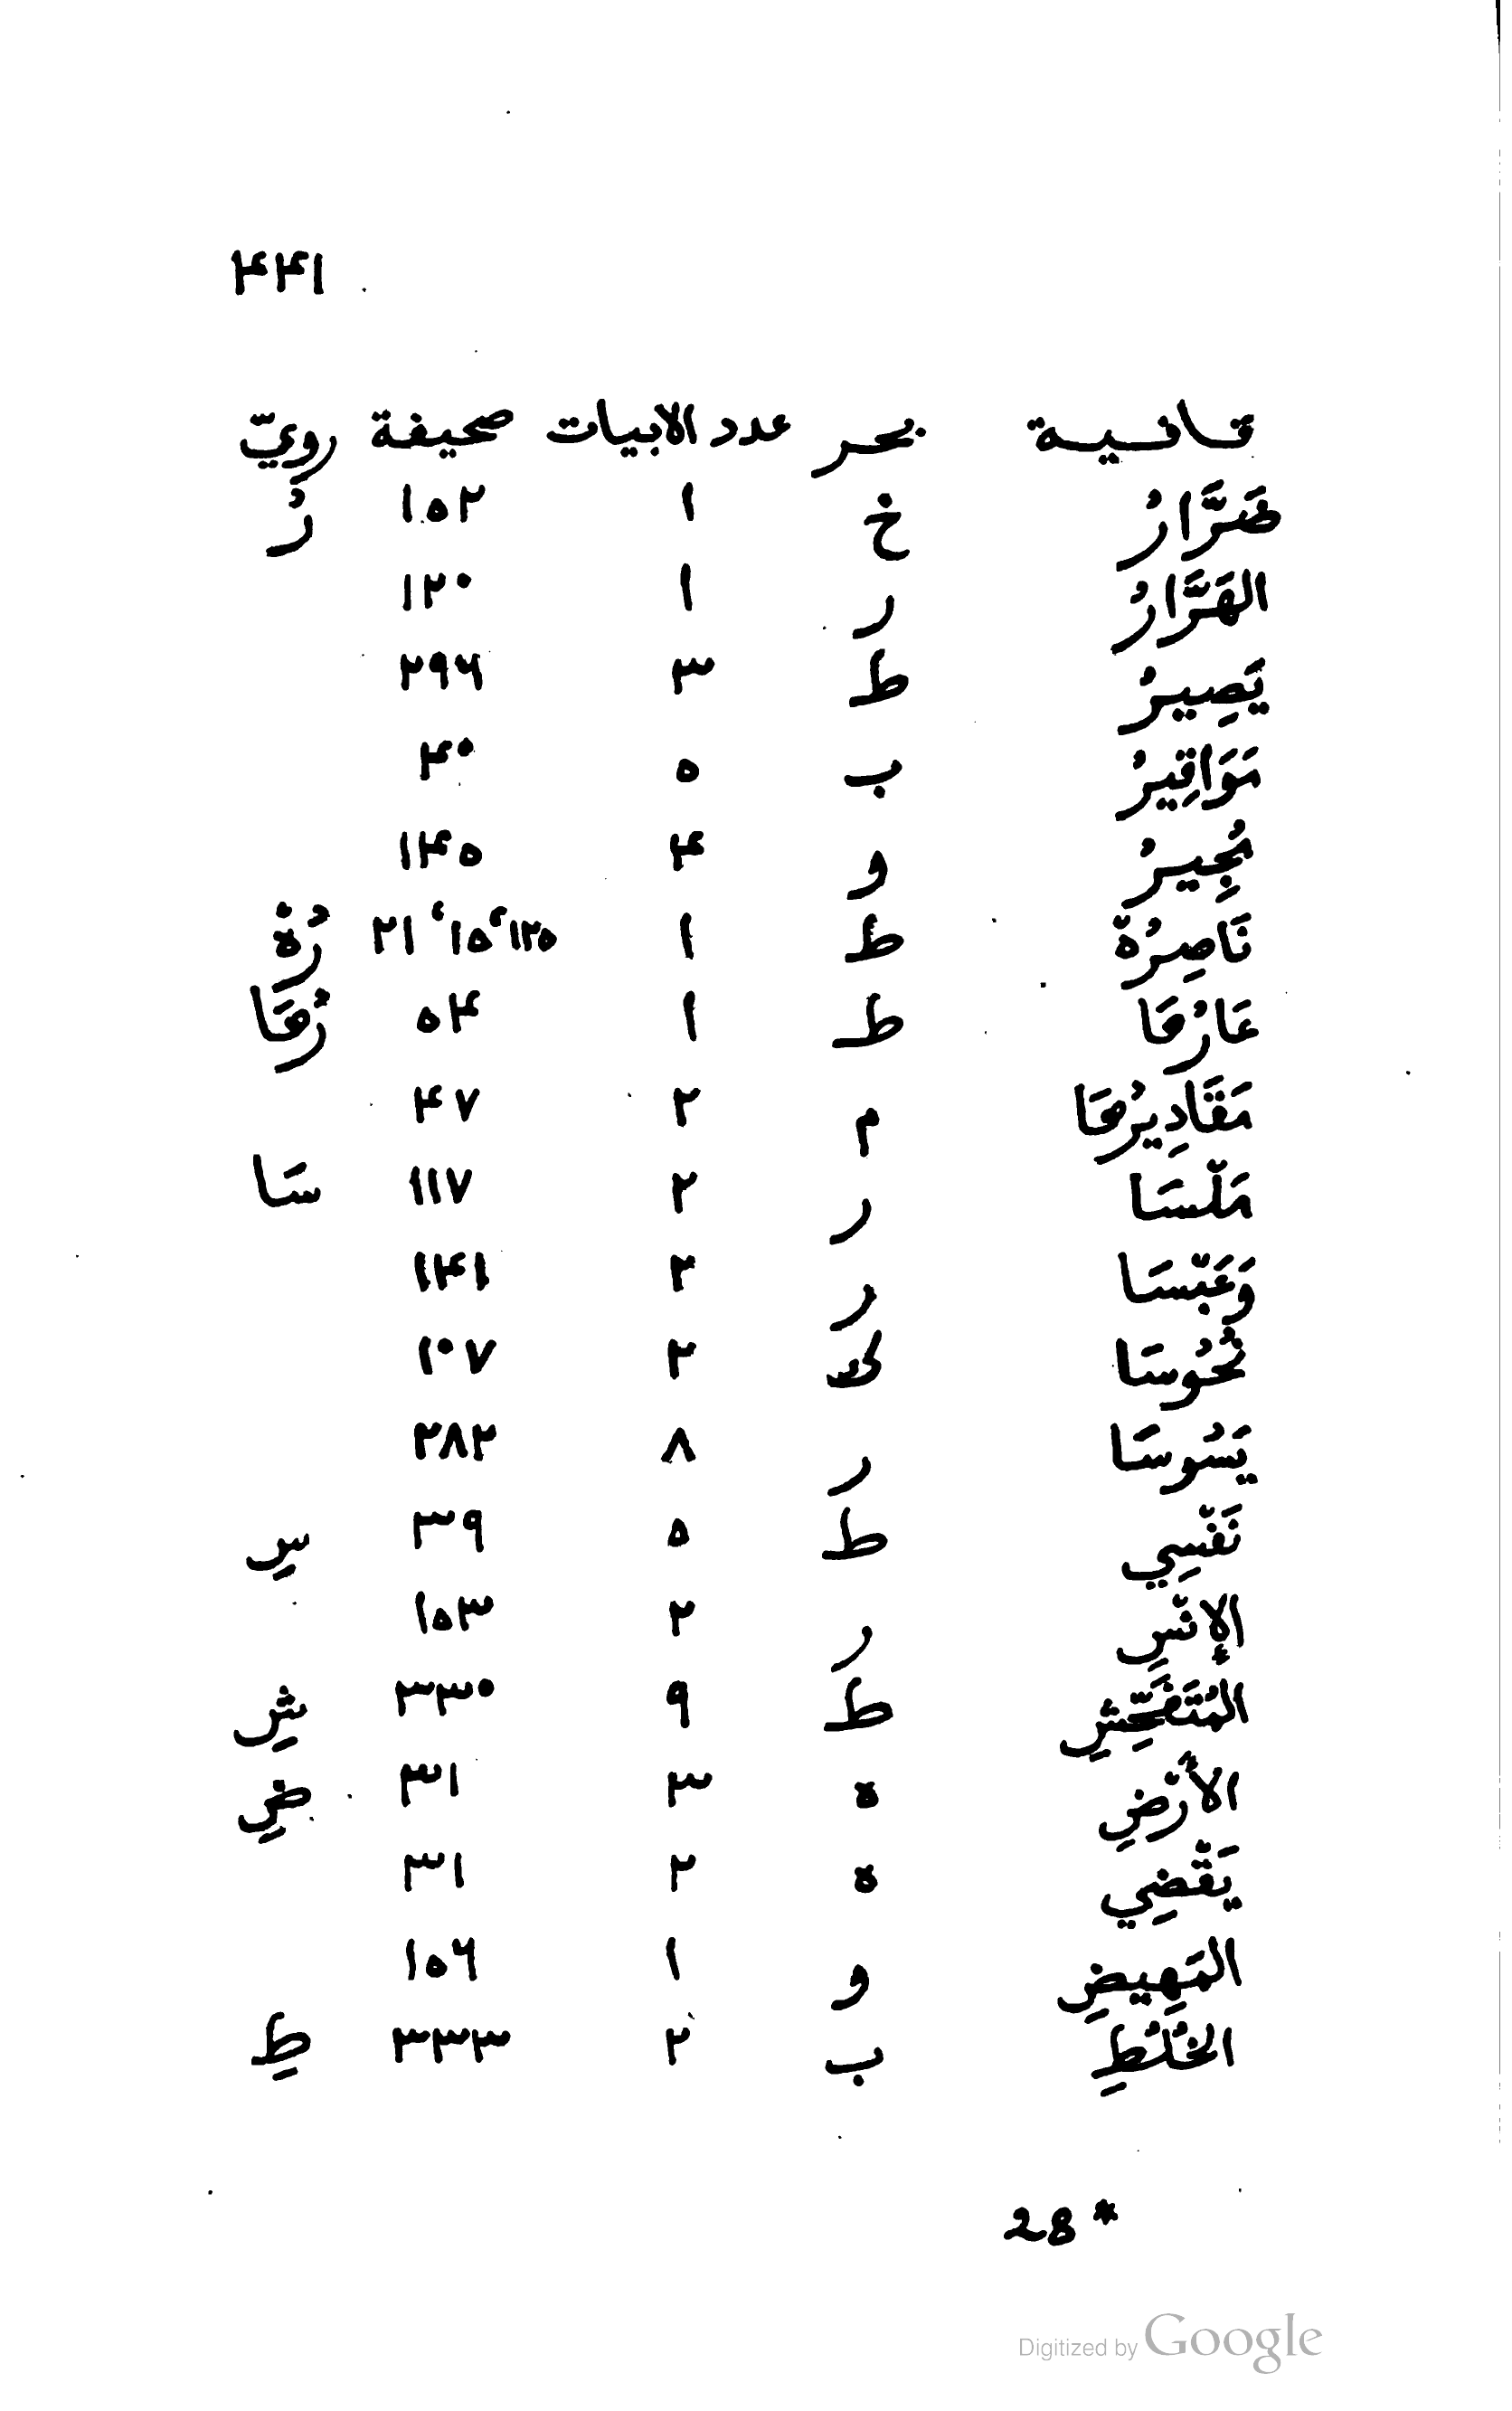 ٤٤١
قافية بحر عدد الابيات صحيفة رويّ
ضَرَّارُ خ ١ ١٥٢ رُ
الهَرَّارُ ر ١ ١٢٠
يَصِيرُ ط ٣ ٢٩٦
مَوَاقِيرُ ب ٥ ٤٠
مُجِيرُ و ٤ ١٤٥
نَاصِرُهْ ط ١ ٢١،١٥،١٢٥ رُهْ
عَارُهَا ط ١ ٥٤ رُهَا
مَقَادِيرُهَا م ٢ ٤٧
مَلْسَا ر ٢ ١١٧ سَا
وَعَبْسَا ر ٢ ١٤١
نُحُوسَا ك ٢ ١٠٧
يَسُوسَا ر ٨ ٢٨٢
نَفْسِي ط ٥ ٣٩ سِ
الإِنْسِ ر ٢ ١٥٣
المُتَفَحِّشِ ط ٩ ٣٣٠ شِ
الأَرْضِ ه ٣ ٣١ ضِ
يَقْضِي ه ٢ ٣١
المَهِيضِ و ١ ١٥٦
الخُلُطِ ب ٢ ٣٣٣ طِ
28*
Digitized by Google